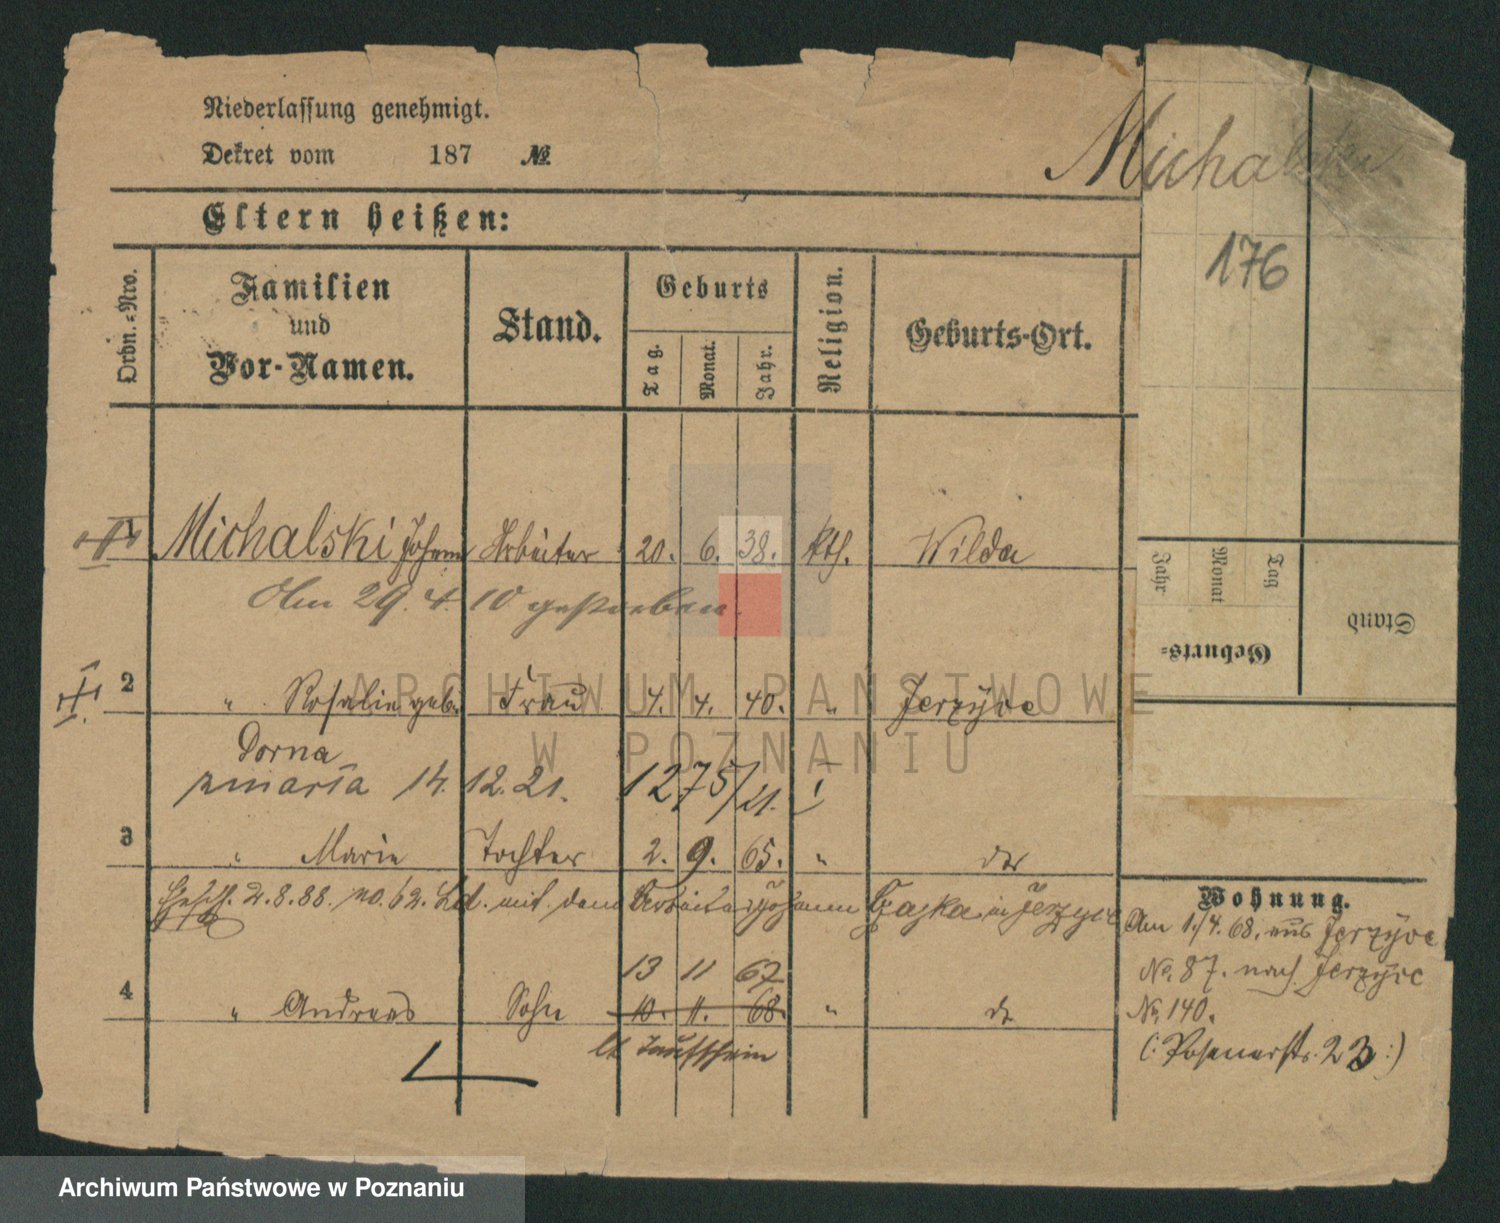 Niederlassung genehmigt.
Dekret vom 187 №
Michalski
176
Eltern heißen:
Ordn.-Nro.
Familien und Vor-Namen.
Stand.
Geburts
Tag.
Monat.
Jahr.
Religion.
Geburts-Ort.
1 Michalski Johann Arbeiter 20. 6. 38. kth. Wilda
Am 29. 4. 10 gestorben.
2 " Rosalie geb. Frau 4. 4. 40. " Jerzyce
Dorna
zmarła 14. 12. 21. 1275/21.
3 " Marie Tochter 2. 9. 65. " do
Gesch. 2.8.88. no. 62. mit dem Arbeiter Johann Czajka in Jerzyce
13 11 67
4 " Andreas Sohn 10. 11. 68. " do
lt. Taufschein
Jahr
Monat
Tag
Geburts-
Stand
Wohnung.
Am 1./4. 68. aus Jerzyce
No. 87. nach Jerzyce
No. 140.
(: Posenerstr. 23 :)
ARCHIWUM PAŃSTWOWE
W POZNANIU
Archiwum Państwowe w Poznaniu